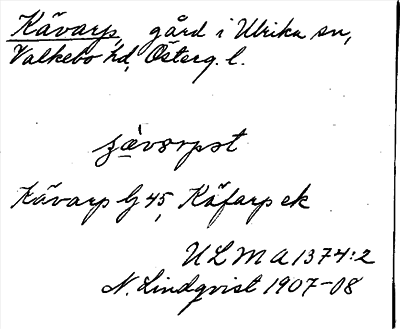 Kåvarp, gård i Ulrika sn,
Valkebo hd, Österg. l.
Kåvarp G 45, Kåfarp ek
ULMA 1374:2
N. Lindqvist 1907-08